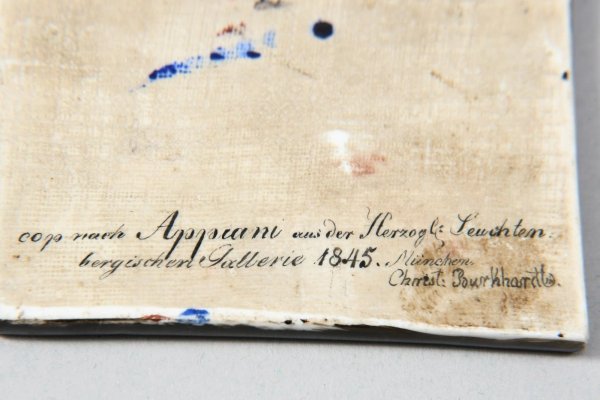 cop nach Appiani aus der Herzogl: Leuchten:
bergischen Gallerie 1845. München.
Christ: Burkhardt.